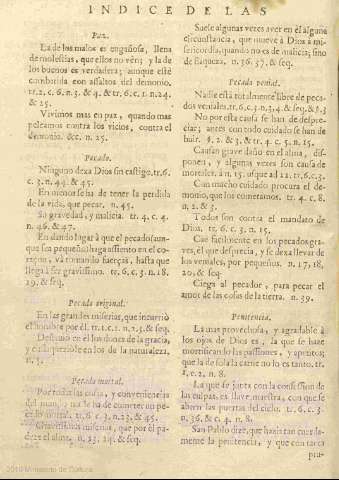 INDICE DE LAS
Paz.
La de los malos es engañosa, llena
de molestias, que ellos no vén; y la de
los buenos es verdadera; aunque esté
combatida con assaltos del demonio.
tr.2. c.6. n.3. & 4. & tr.6. c.1. n.24.
& 25.
Vivimos mas en paz, quando mas
peleamos contra los vicios, contra el
demonio. &c. n. 25.
Pecado.
Ninguno dexa Dios sin castigo. tr.6.
c. 3. n. 44. & 45.
En menos se ha de tener la perdida
de la vida, que pecar. n. 45.
Su gravedad, y malicia. tr. 4. c. 4.
n. 46. & 47.
En dando lugar à que el pecado (aun-
que sea pequeño) haga assiento en el co-
raçon, và tomando fuerças, hasta que
llega à ser gravissimo. tr. 6. c. 3. n. 18.
19. & seq.
Pecado original.
En las grandes miserias, que incurriò
el hombre por èl. tr.1. c.1. n.2.5. & seq.
Destruiò en el los dones de la gracia,
y en lo possible en los de la naturaleza,
n. 3.
Pecado mortal.
Por todas las cosas, y conveniencias
del mundo no se ha de cometer un pe-
cado mortal. tr.6. c. 3. n.23. & 45.
Gravissimas miserias, que por èl pa-
dece el alma. n. 23. 24. & seq.
Suele algunas vezes aver en él alguna
circunstancia, que mueve à Dios à mi-
sericordia, quando no es de malicia; sino
de flaqueza. n. 36. 37. & seq.
Pecado venial.
Nadie està totalmente libre de peca-
dos veniales. tr.6. c.3. n.3. 4. & seq. & 5.3
No por esta causa se han de despre-
ciar; antes con todo cuidado se han de
huir. §. 2. & 3. & tr. 4. c. 5. n. 15.
Causan grave daño en el alma, dis-
ponen, y algunas vezes son causa de
mortales. à n. 15. usque ad 22. tr.6. c.3.
Con mucho cuidado procura el de-
monio, que los cometamos. tr. 4. c. 8.
n. 2. & 3.
Todos son contra el mandato de
Dios. tr. 6. c. 3. n. 15.
Cae facilmente en los pecados gra-
ves, el que desprecia, y se dexa llevar de
los veniales, por pequeños. n. 17. 18,
20. & seq.
Ciega al pecador, para pecar el
amor de las cosas de la tierra. n. 39.
Penitencia.
La mas provechosa, y agradable à
los ojos de Dios es, la que se haze
mortifican las passiones, y apetitos;
que la de sola la carne no lo es tanto. tr.
8. c. 2. n. 8.
La que se junta con la confession de
las culpas, es llave maestra, con que se
abren las puertas del cielo. tr. 6. c. 3.
n. 36. & c. 4. n. 8.
San Pablo dize, que hazia tan cuerda-
mente la penitencia, y que con tarea
pru-
2010 Ministerio de Cultura